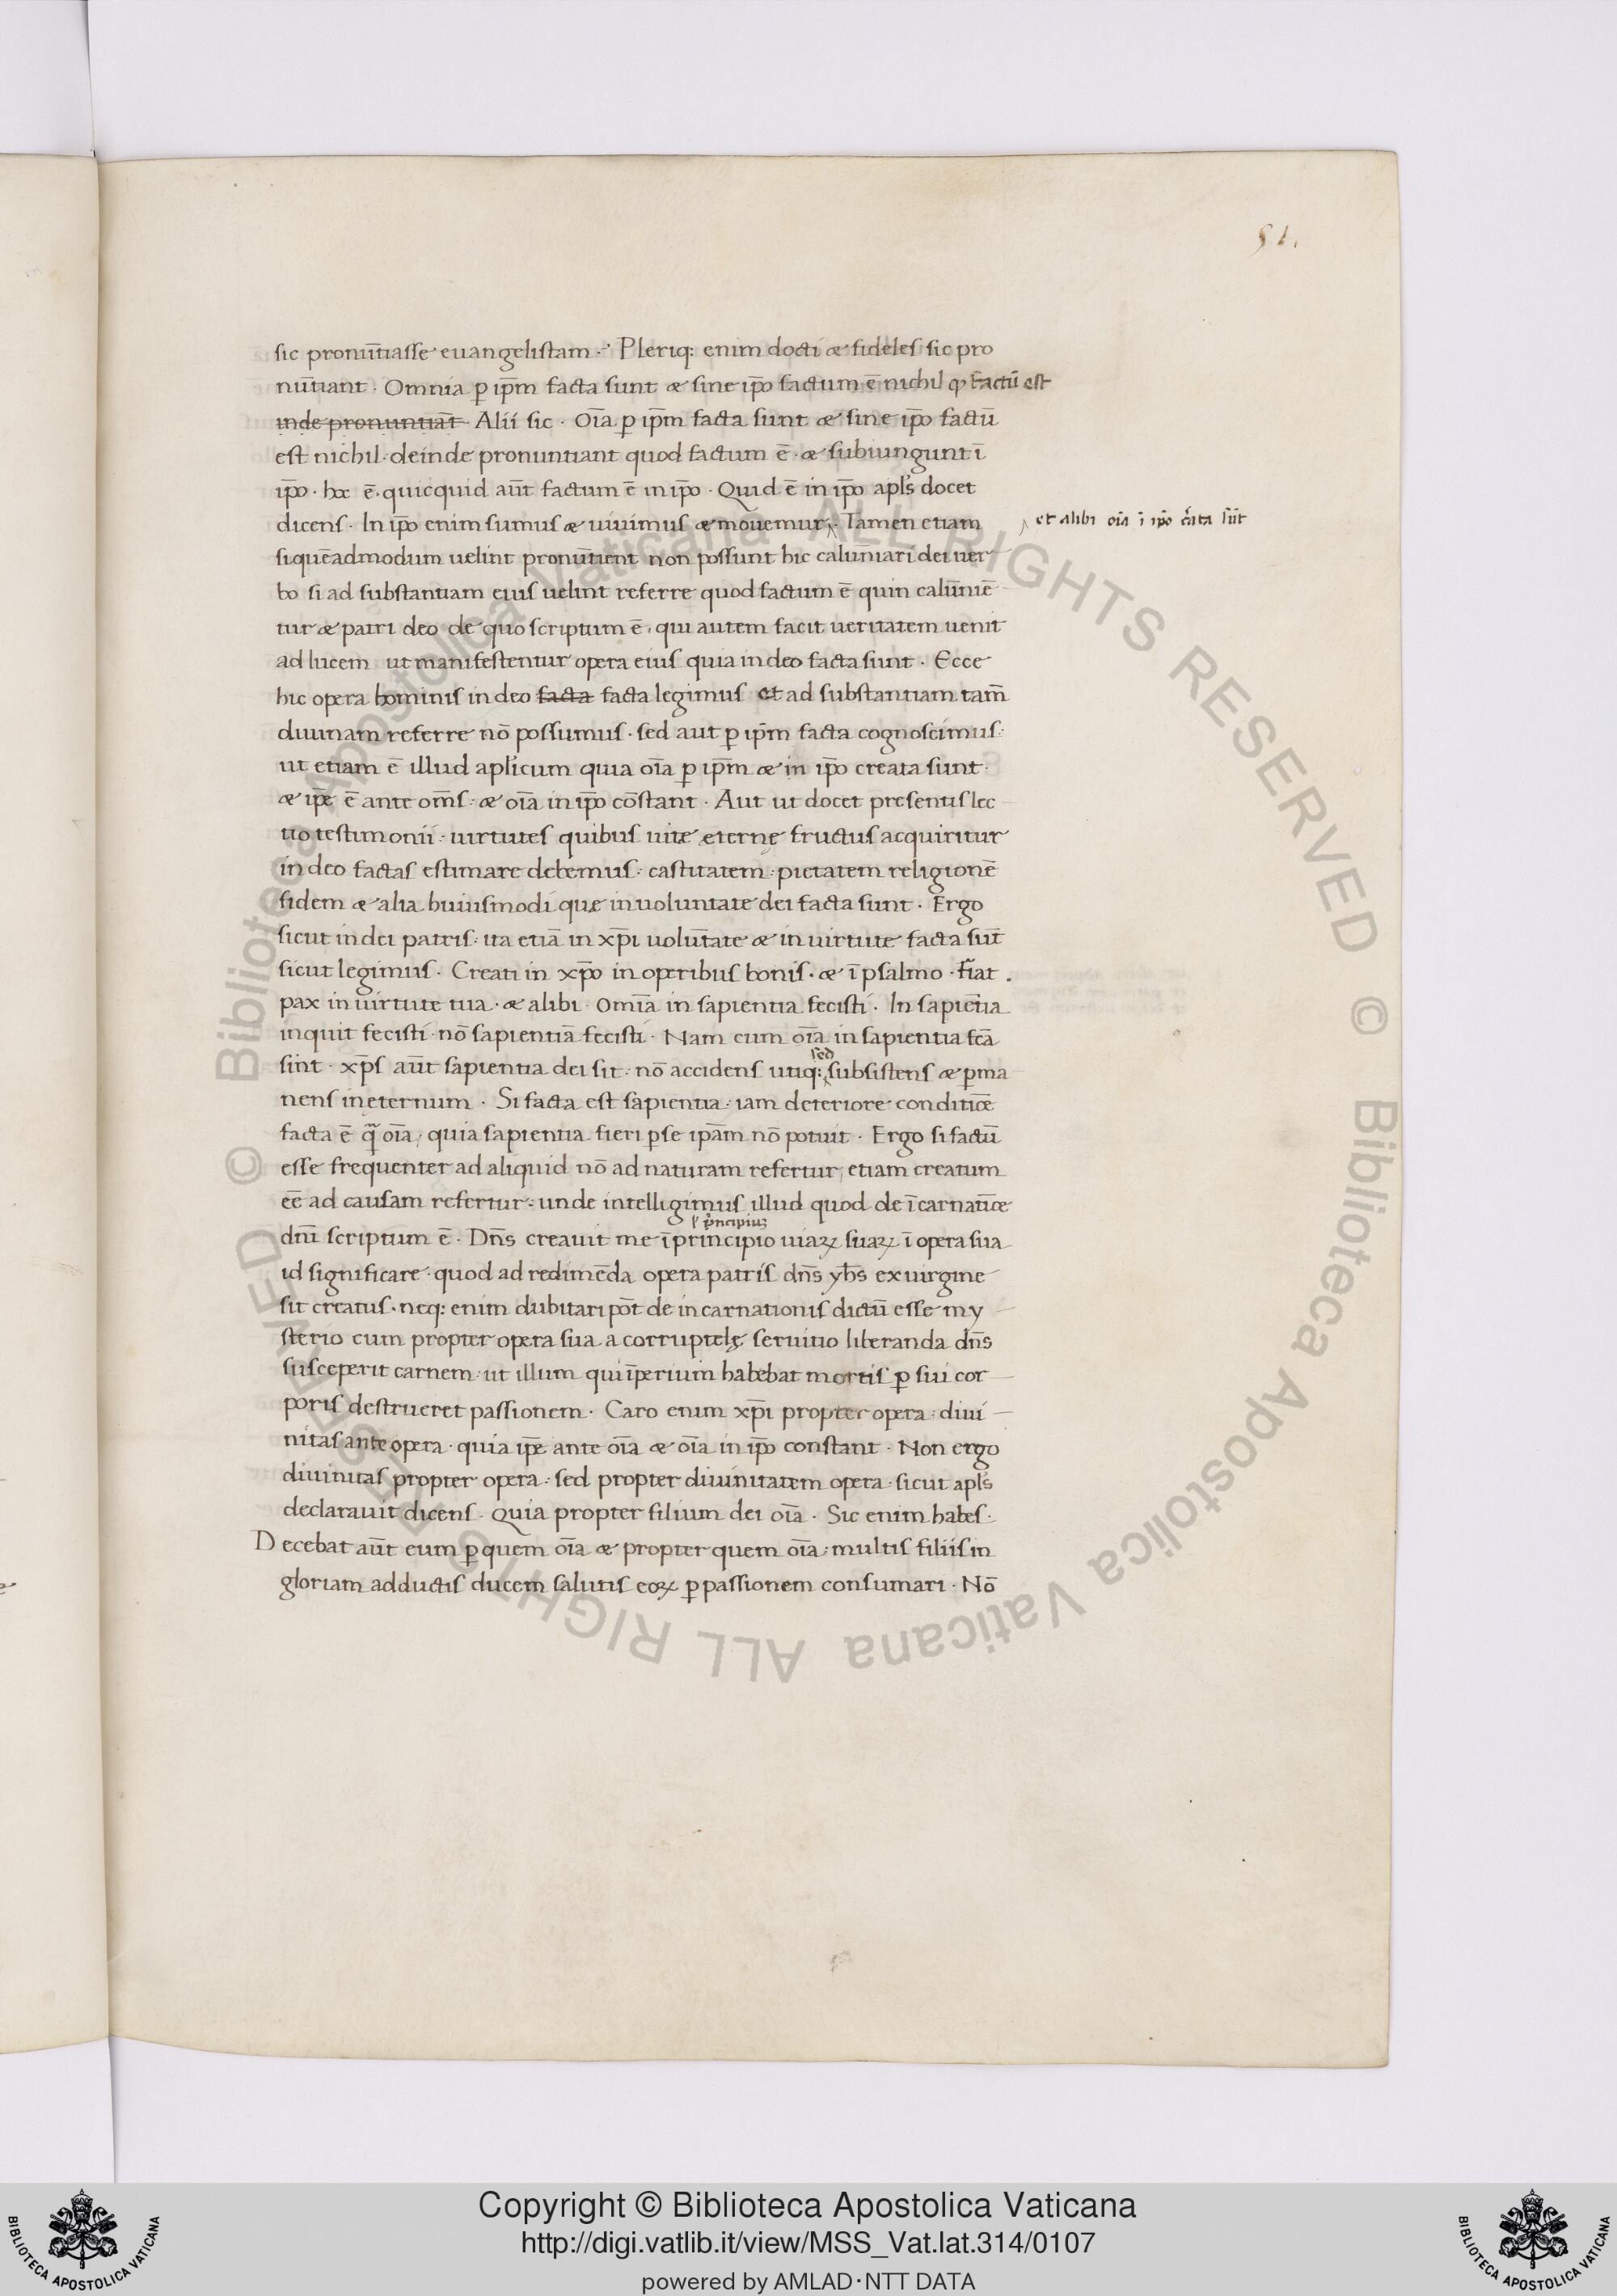 51.
sic pronūtiasse euangelistam. Pleriq: enim docti & fideles sic pro
nūtiant. Omnia ꝑ ip̄m facta sunt & sine ip̄o factum ē nichil ꝙ factū est
inde pronuntiāt. Alii sic. Oīa ꝑ ip̄m facta sunt & sine ip̄o factū
est nichil. deinde pronuntiant quod factum ē. & subiungunt ī
ip̄o. hoc ē. quicquid aūt factum ē in ip̄o. Quid ē in ip̄o apl̄s docet
dicens. In ip̄o enim sumus & uiuimus & mouemur. Tamen etiam
et alibi oīa ī ip̄o c̄ata sūt
siquēadmodum uelint pronūtient non possunt hic calūniari dei uer
bo si ad substantiam eius uelint referre quod factum ē quin calūniē
tur & patri deo de quo scriptum ē. qui autem facit ueritatem uenit
ad lucem ut manifestentur opera eius quia in deo facta sunt. Ecce
hic opera hominis in deo facta facta legimus et ad substantiam tam̄
diuinam referre nō possumus. sed aut ꝑ ip̄m facta cognoscimus.
ut etiam ē illud apl̄icum quia oīa ꝑ ip̄m & in ip̄o creata sunt.
& ip̄e ē ante om̄s. & oīa in ip̄o cōstant. Aut ut docet presentis lec
tio testimonii. uirtutes quibus uite eternę fructus acquiritur
in deo factas estimare debemus. castitatem. pietatem religionē
fidem & alia huiusmodi quę in uoluntate dei facta sunt. Ergo
sicut in dei patris. ita etiā in xp̄i volūtate & in uirtute facta sūt
sicut legimus. Creati in xp̄o in operibus bonis. & ī psalmo. fīat.
pax in uirtute tua. & alibi. omīa in sapientia fecisti. In sapiētia
inquit fecisti. nō sapientiā fecisti. Nam cum oīa in sapientia fcā
sed
sint. xp̄s aūt sapientia dei sit. nō accidens utiq: subsistens & ꝑma
nens in eternum. Si facta est sapientia. iam deteriore conditiōe
facta ē q̄ oīa, quia sapientia fieri ꝑ se ipām nō potuit. Ergo si factū
esse frequenter ad aliquid nō ad naturam refertur, etiam creatum
eē ad causam refertur. unde intelligimus illud quod de īcarnatiōe
p̄ncipiuꝫ
dn̄i scriptum ē. Dn̄s creauit me ī principio uiaꝝ suaꝝ ī opera sua
id significare. quod ad redimēda opera patris dn̄s yh̄s ex uirgine
sit creatus. neq: enim dubitari pōt de incarnationis dictū esse my
sterio cum propter opera sua a corruptelę seruitio liberanda dn̄s
susceperit carnem. ut illum qui īperium habebat mortis ꝑ sui cor
poris destrueret passionem. Caro enim xp̄i propter opera. diui
nitas ante opera. quia ip̄e ante oīa & oīa in ip̄o constant. Non ergo
diuinitas propter opera. sed propter diuinitatem opera. sicut apl̄s
declarauit dicens. Quia propter filium dei oīa. Sic enim habes.
Decebat aūt eum ꝑ quem oīa & propter quem oīa. multis filiis in
gloriam adductis ducem salutis eoꝝ ꝑ passionem consumari. Nō
© Biblioteca Apostolica Vaticana ALL RIGHTS RESERVED © Biblioteca Apostolica Vaticana ALL RIGHTS RESERVED
Copyright © Biblioteca Apostolica Vaticana
http://digi.vatlib.it/view/MSS_Vat.lat.314/0107
powered by AMLAD·NTT DATA
BIBLIOTECA APOSTOLICA VATICANA
BIBLIOTECA APOSTOLICA VATICANA